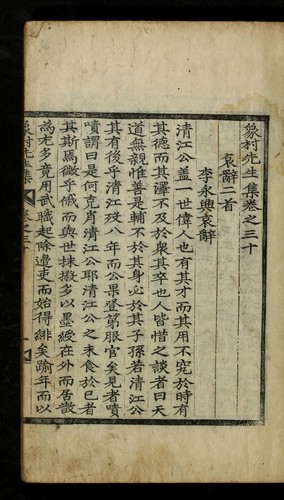 象村先生集卷之三十
哀辭二首
李永興哀辭
清江公蓋一世偉人也有其才而其用不究於時有
其德而其澤不及於衆其卒也人皆惜之談者曰天
道無親惟善是輔不於其身必於其子孫若清江公
其有後乎清江歿八年而公果登第服官矣見者嘖
嘖謂曰是何克肖清江公耶清江公之未食於已者
其斯焉徵乎俄而與世抹摋多以墨綬在外而居散
爲尤多竟用武職起除邊吏而始得緋矣踰年而以
象村先生集
卷之三十